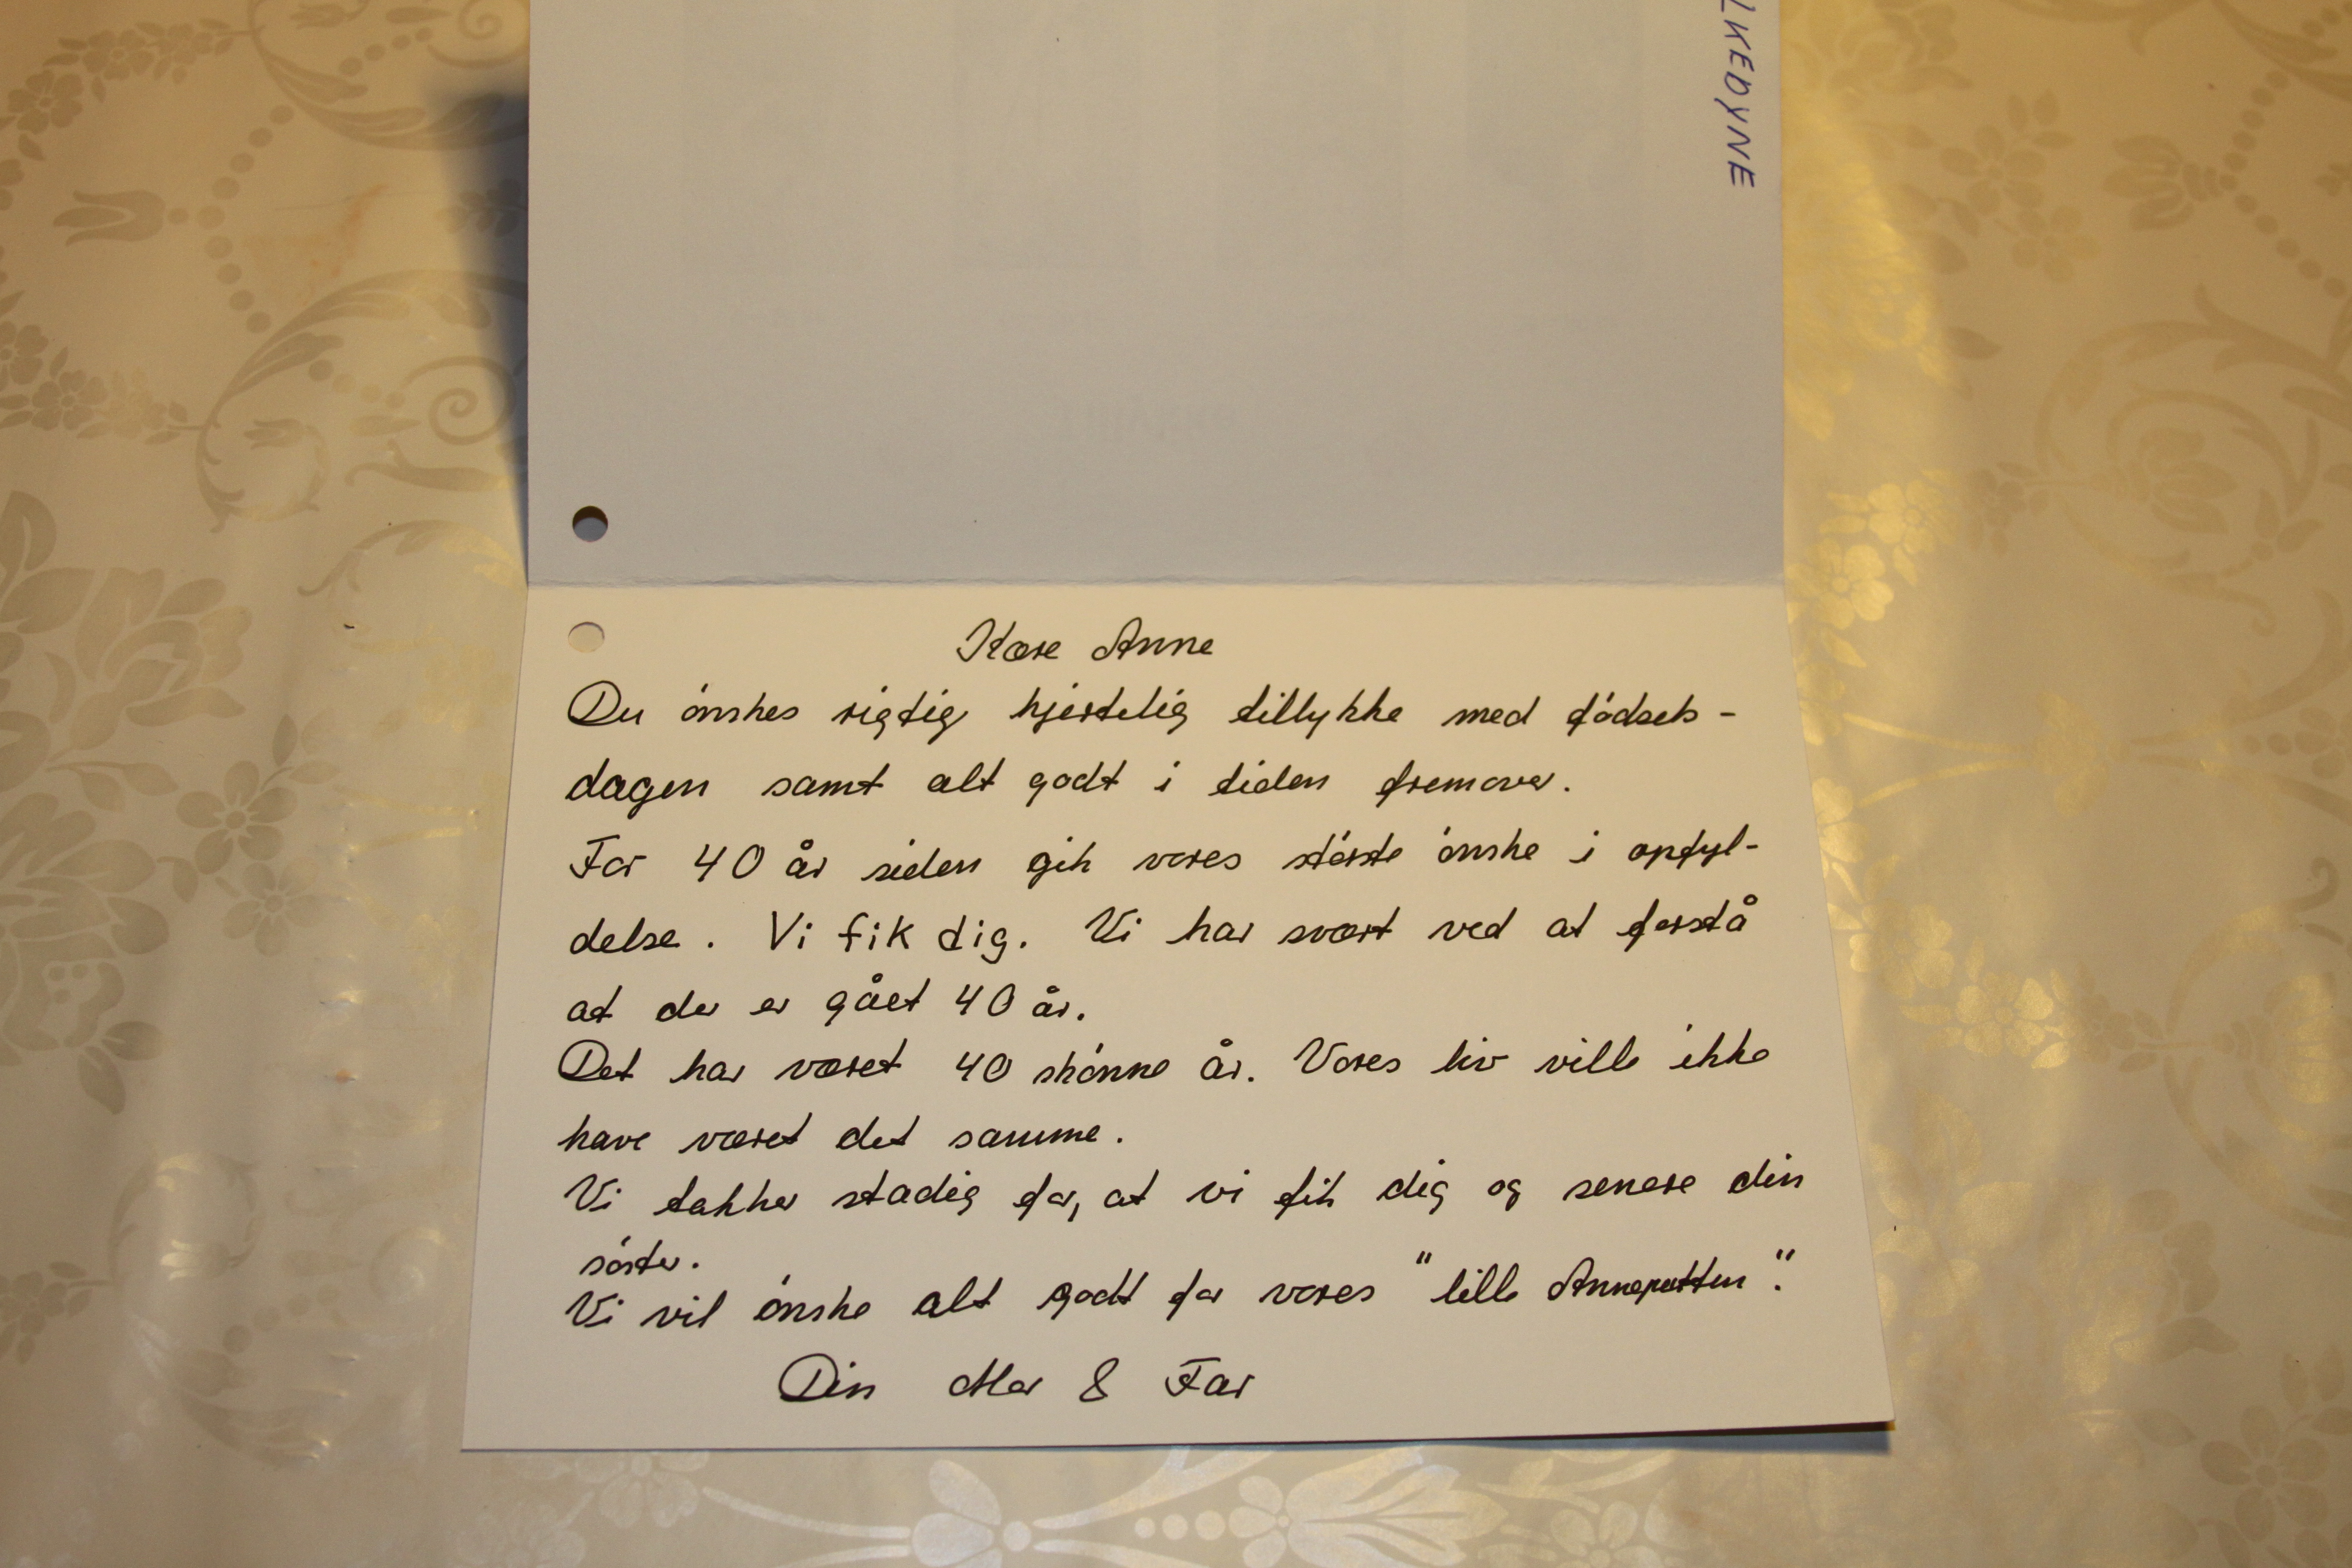 LKEDYNE
Kære Anne
Du ónskes rigtig hjertelig tillykke med fódsels-
dagen samt alt godt i tiden fremover.
For 40 år siden gik vores stórste ónske i opfyl-
delse. Vi fik dig. Vi har svært ved at forstå
at der er gået 40 år.
Det har været 40 skónne år. Vores liv ville ikke
have været det samme.
Vi takker stadig for, at vi fik dig og senere din
sóster.
Vi vil ónske alt godt for vores "lille Anneputten".
Din Mor & Far